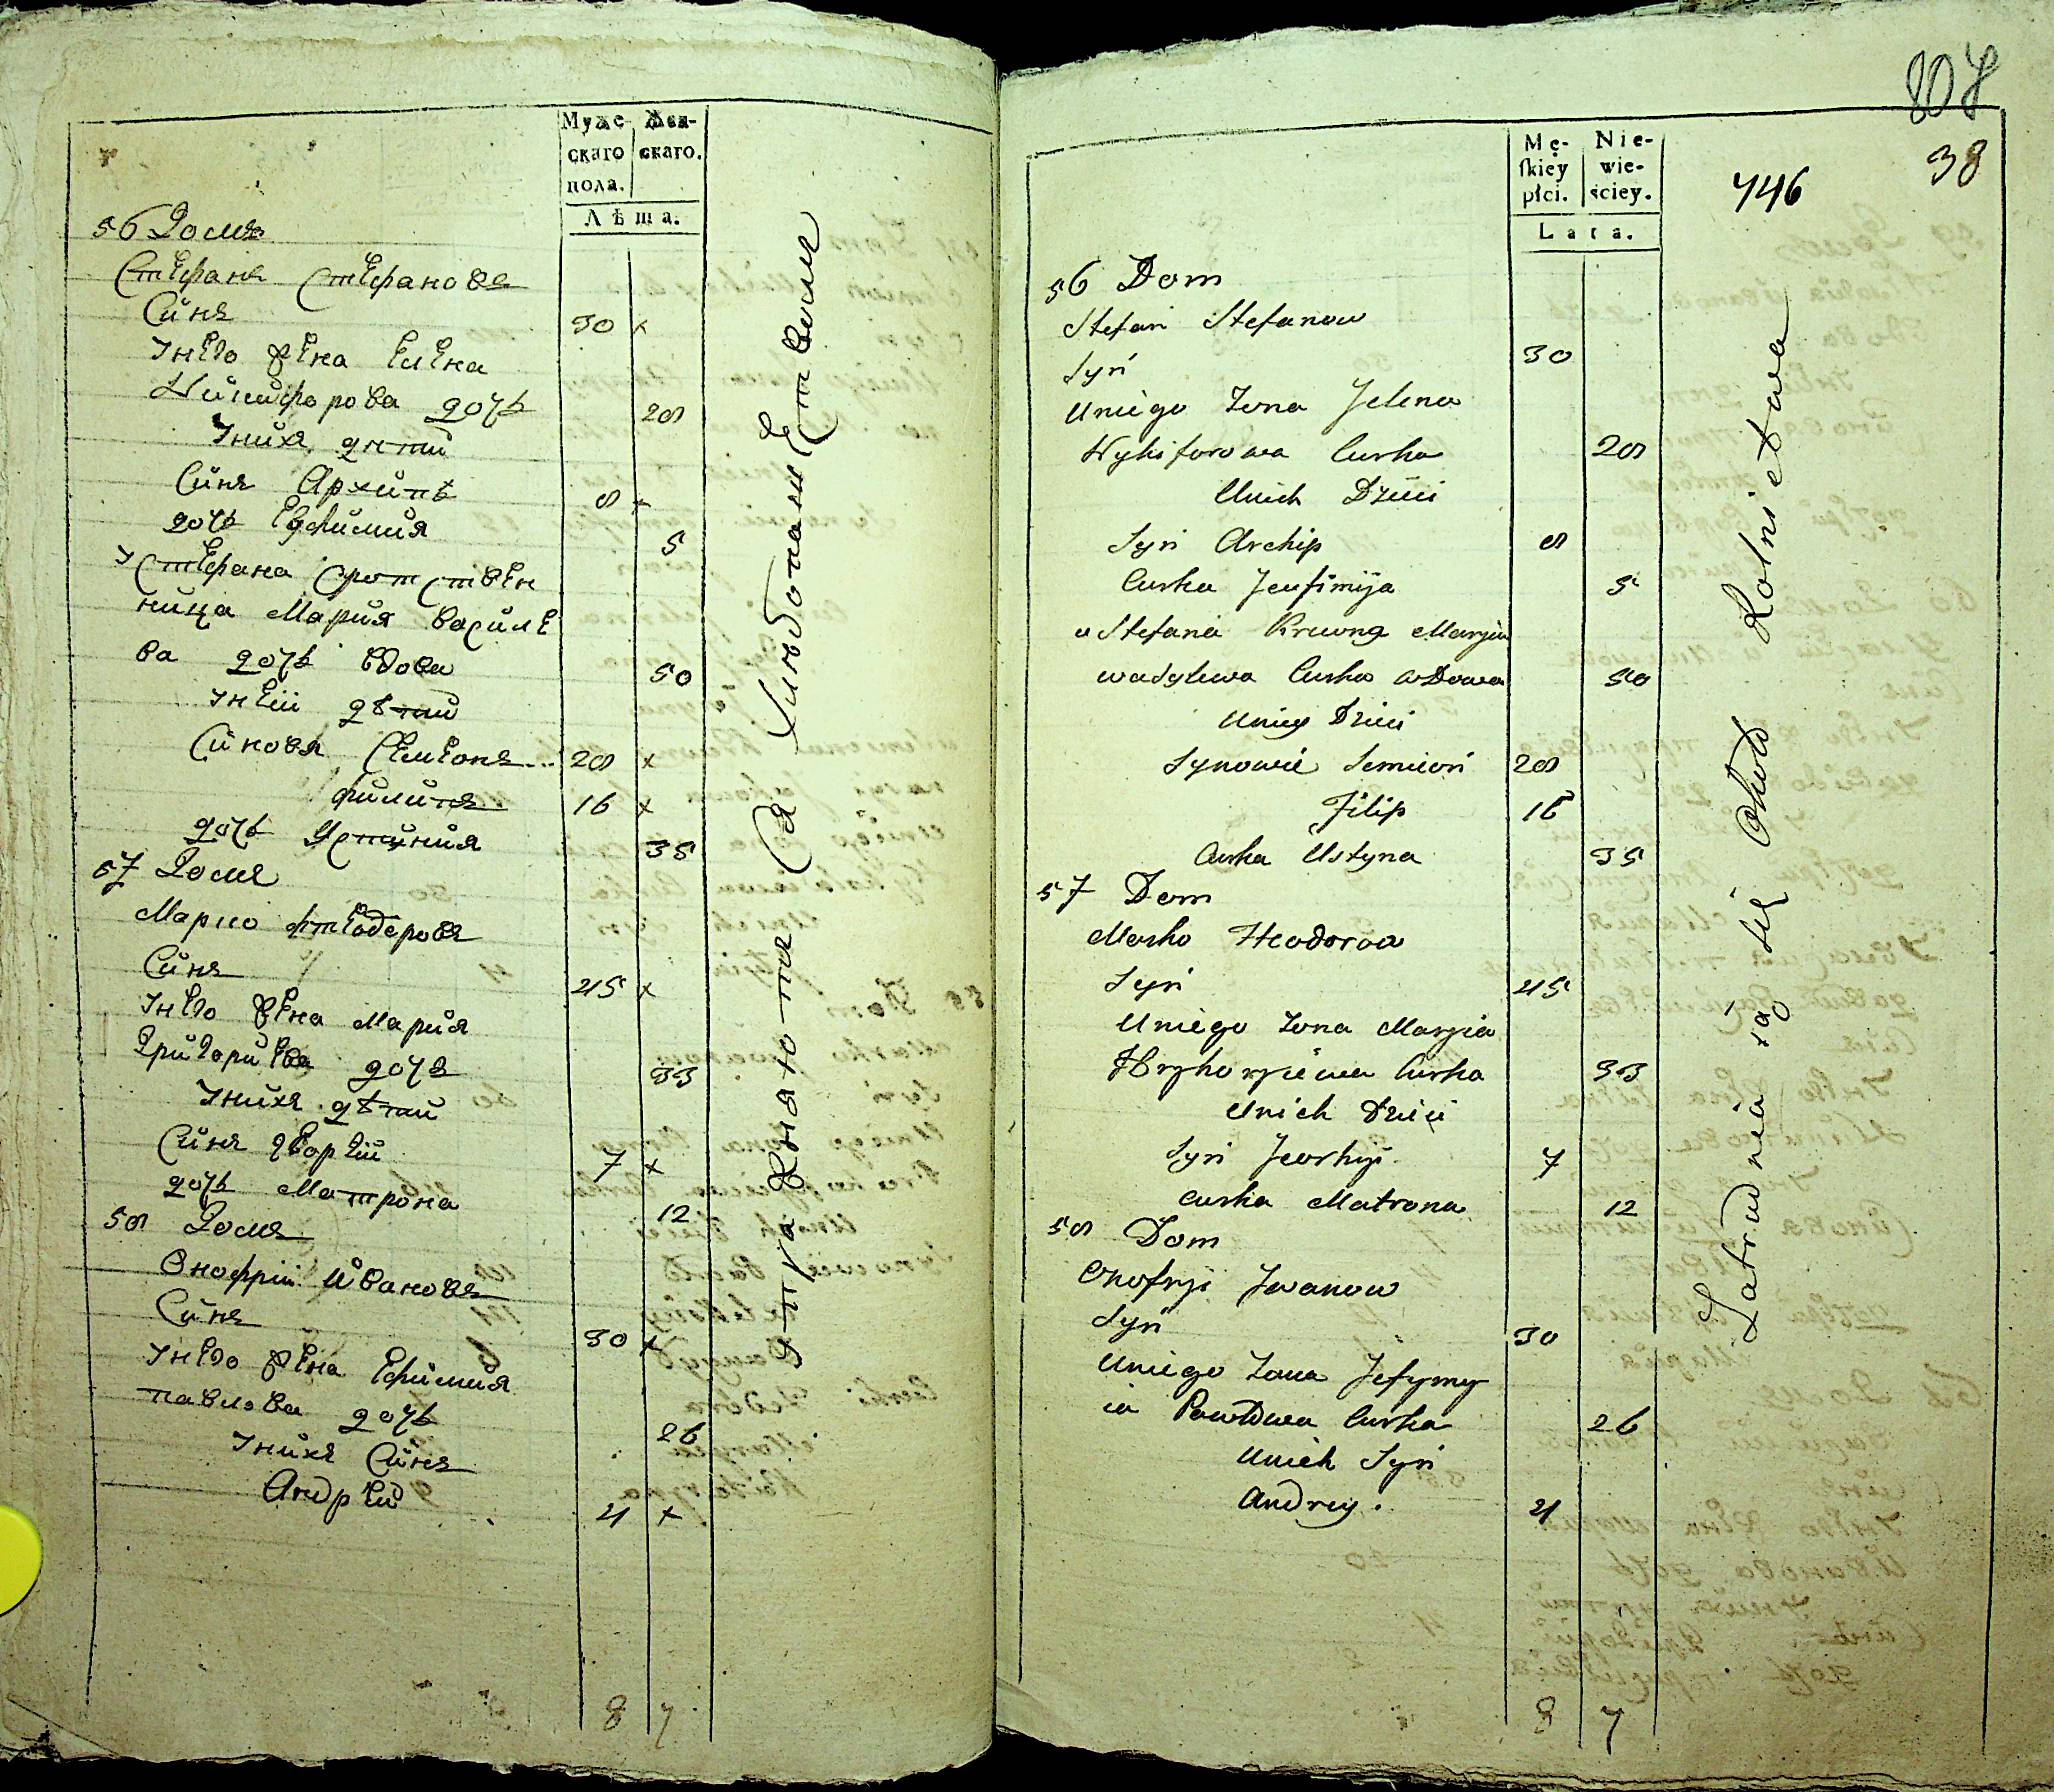 Муже-
скаго
пола.
Жен-
скаго.
Лѣта.
56 Домъ
Стефанъ Стефановъ
Синъ 30 x
Унего жена Елена
Никифорова дочь 28
Униxъ дети
Синъ Архипъ 8 x
дочь Евфимия 5
У Стефана Сротствен
ница Мария Василе
ва дочь вдова 50
Унеи дѣти
Синовя Семеонъ 28 x
филипъ 16 x
дочь Устиния 35
57 Домъ
Марко фтеодоровъ
Синъ 45 x
Унего жена Мария
Григориева дочъ 33
Унихъ дѣти
Синъ Георгїй 7 x
дочь Матрона 12
58 Домъ
Онофрїй Ивановъ
Синъ 30 x
Унего жена Ефимия
павлова дочь 26
Унихъ Синъ
Андрей 4 x
8 7
Ся хлѣбопашеством
807
38
746
Mę-
ſkiey
płci.
Nie-
wie-
ściey.
Lata.
56 Dom
Stefan Stefanow
Syn 30
Uniego Zona Jelena
Nykiforowa Curka 28
Unich Dzieci
Syn Archip 8
Curka Jeufimija 5
u Stefana Krewna Maryia
wasylewa Curka wdowa 50
Uniey Dzieci
Synowie Semieon 28
Filip 16
Curka Ustyna 35
57 Dom
Marko Fteodorow
Syn 45
Uniego Zona Maryia
Hryhoryiewa Curka 33
Unich Dzieci
Syn Jeorhyi 7
Curka Matrona 12
58 Dom
Onofryi Jwanow
Syn 30
Uniego Zona Jefymy
ia Pawłowa Curka 26
Unich Syn
Andrey. 4
8 7
Zatrudniaią się około Rolnictwa